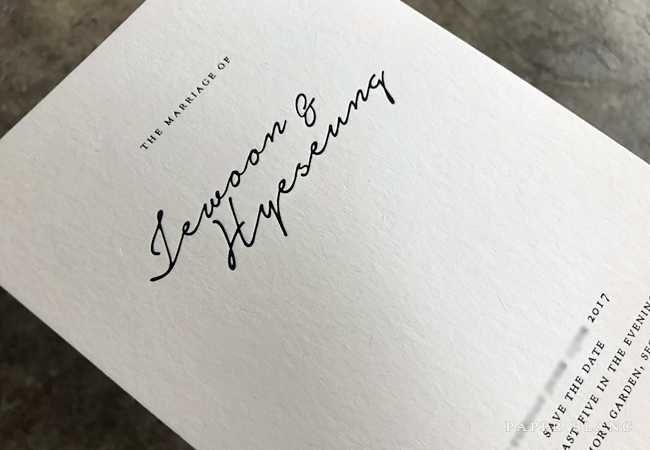 THE MARRIAGE OF
Jewoon &
Hyeseung
2017
SAVE THE DATE
AST FIVE IN THE EVENING
MORY GARDEN, SE
PAPER BLANC